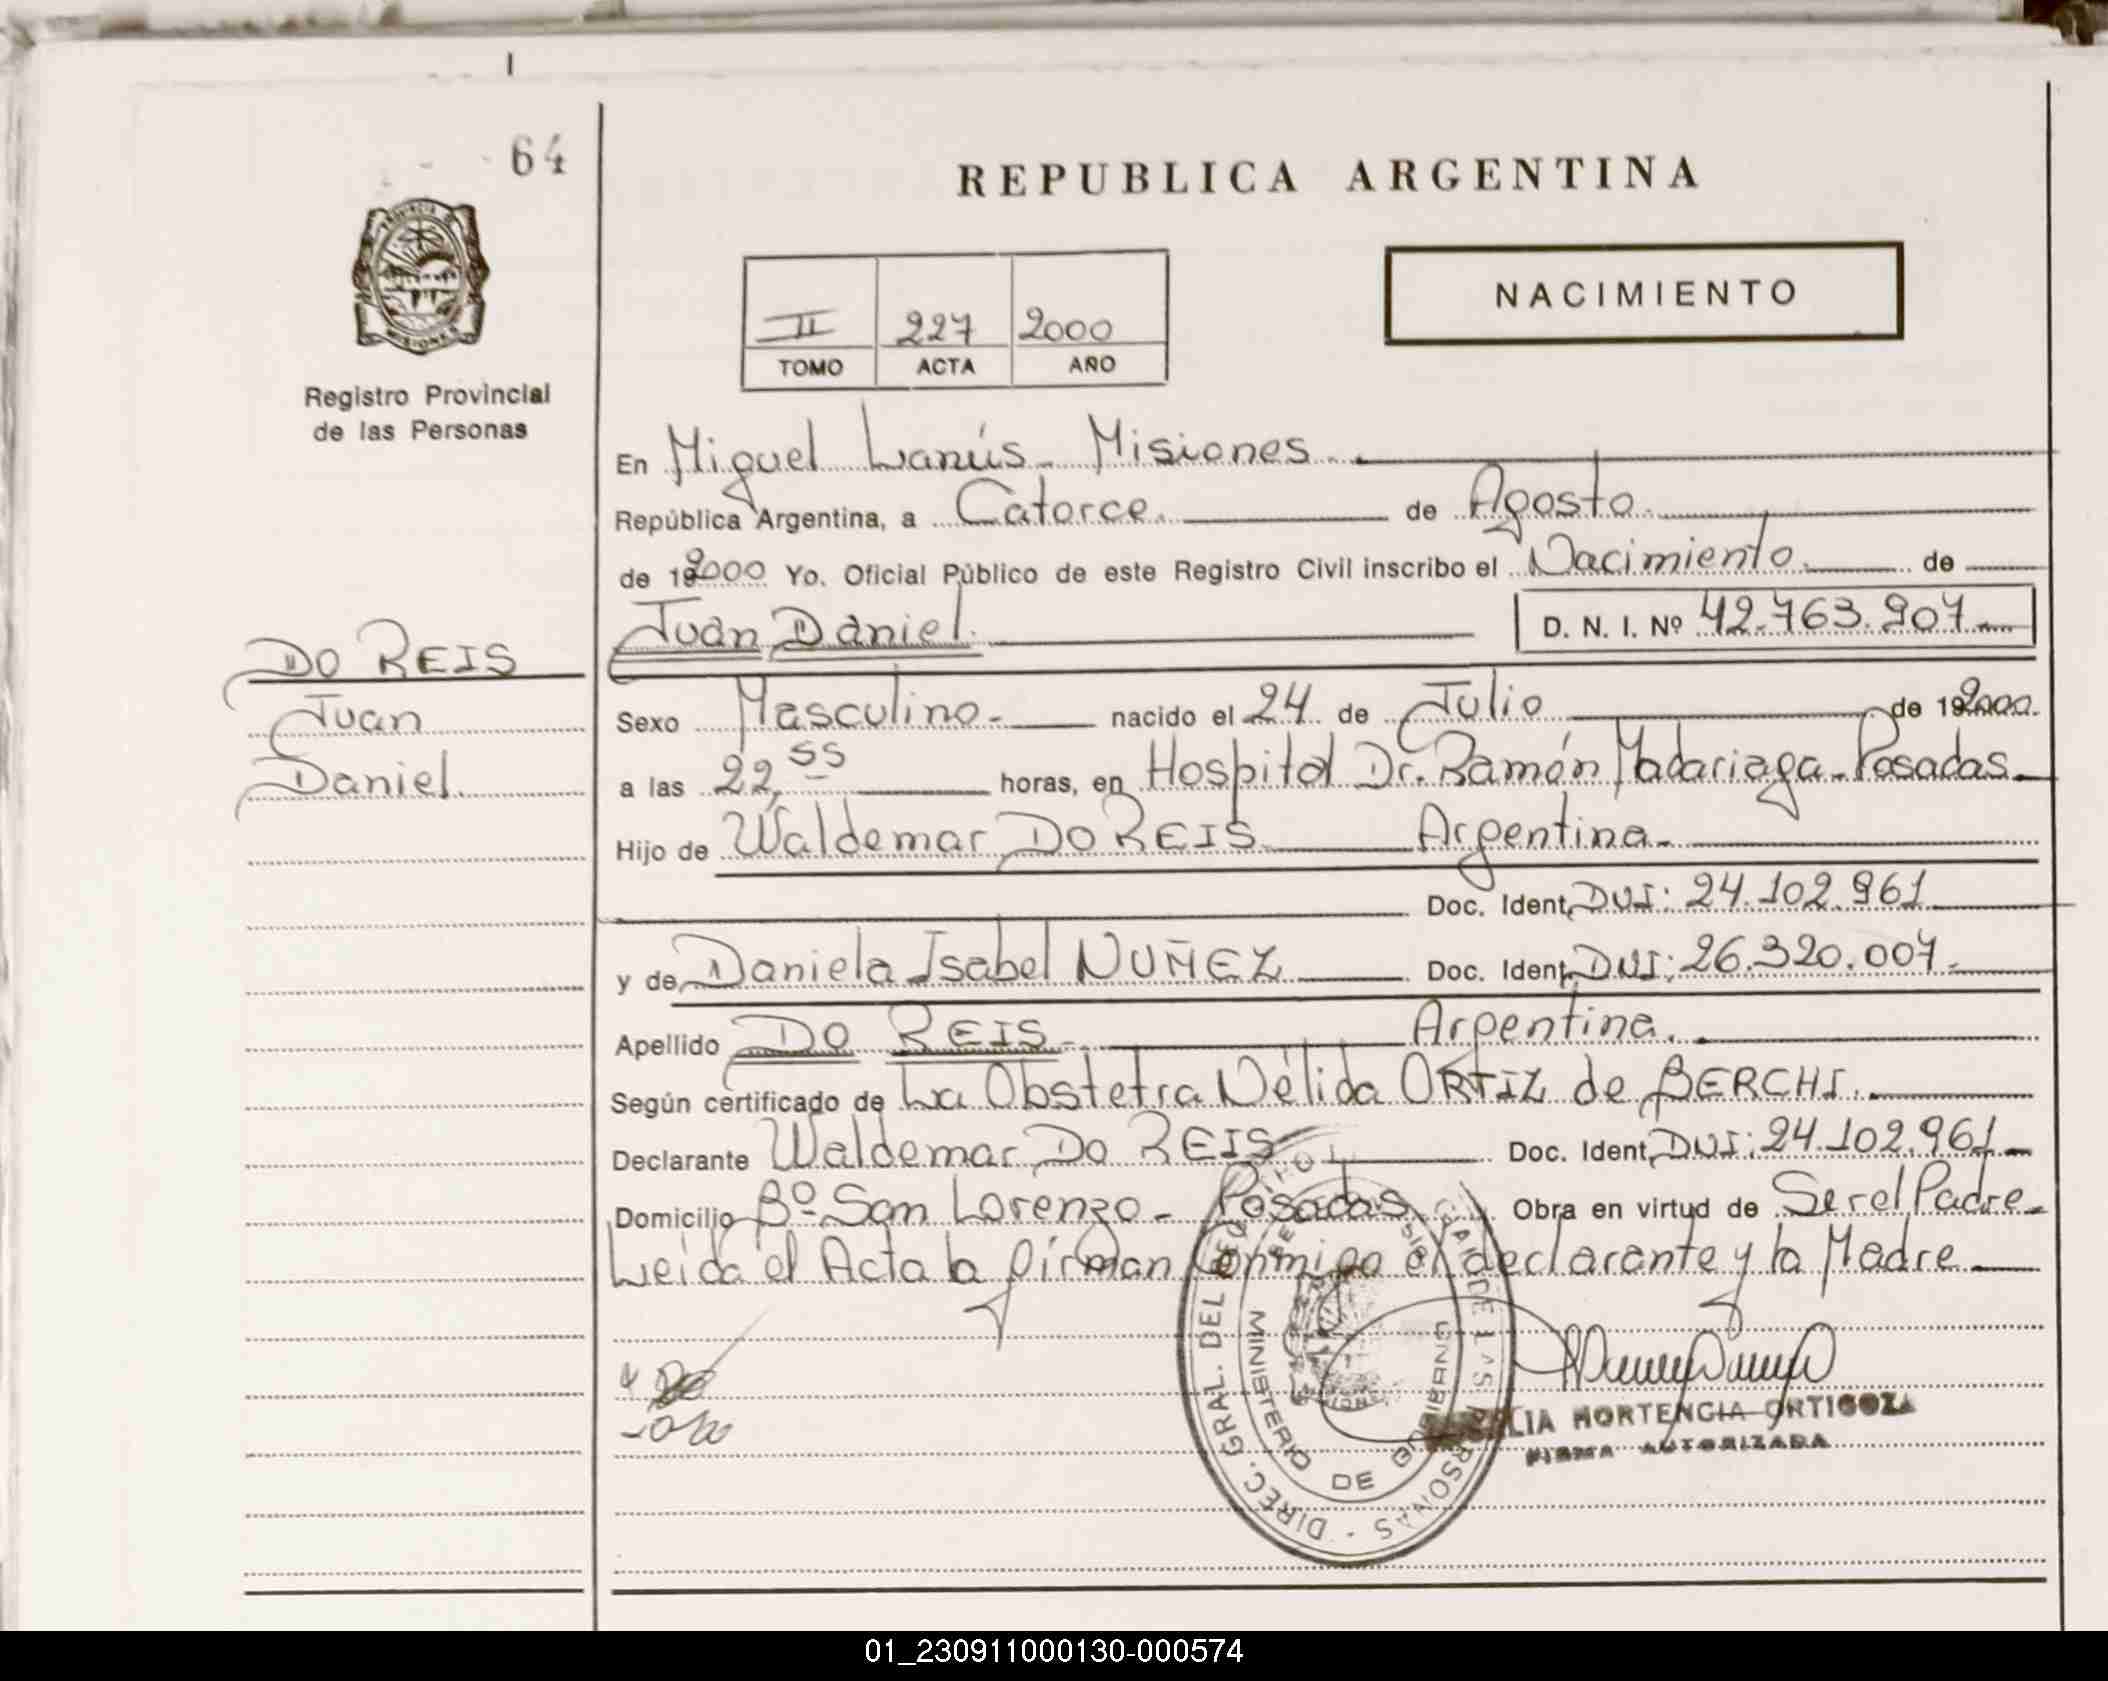 64
REPUBLICA ARGENTINA
PROVINCIA DE MISIONES
NACIMIENTO
II 227 2000
TOMO ACTA AÑO
Registro Provincial
de las Personas
En Miguel Lanús - Misiones.
República Argentina, a Catorce. de Agosto.
de 192000 Yo. Oficial Público de este Registro Civil inscribo el Nacimiento. de
Juan Daniel. D. N. I. Nº 42.763.907.-
DO REIS
Juan
Daniel.
Sexo Masculino.- nacido el 24 de Julio de 192000.
a las 22,55 horas, en Hospital Dr. Ramón Madariaga - Posadas.
Hijo de Waldemar DO REIS Argentina.-
Doc. Ident. DNI: 24.102.961
y de Daniela Isabel NUÑEZ Doc. Ident. DNI: 26.320.007.-
Apellido DO REIS.- Argentina.
Según certificado de La Obstetra Nélida ORTIZ de BERCHI.
Declarante Waldemar DO REIS Doc. Ident. DNI: 24.102.961.-
Domicilio Bº San Lorenzo - Posadas. Obra en virtud de Ser el Padre.-
Leida el Acta la firman Conmigo el declarante y la Madre
DIREC. GRAL. DEL REGISTRO PROVINCIAL DE LAS PERSONAS
MINISTERIO DE GOBIERNO
HORTENCIA ORTIGOZA
FIRMA AUTORIZADA
01_230911000130-000574